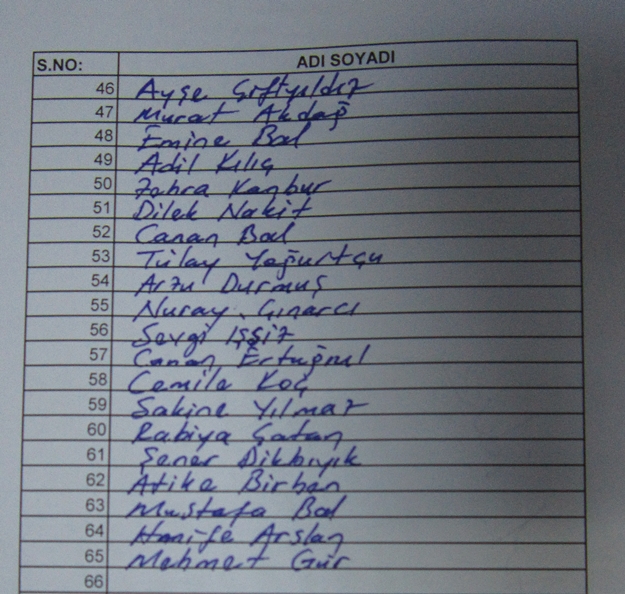 S.NO: ADI SOYADI
46 Ayşe Çiftyıldız
47 Murat Akdağ
48 Emine Bal
49 Adil Kılıç
50 Zahra Kanbur
51 Dilek Nakit
52 Canan Bal
53 Tülay Yoğurtçu
54 Arzu Durmuş
55 Nuray Çınarcı
56 Sevgi Işsiz
57 Canan Ertuğrul
58 Cemile Koç
59 Sakine Yılmaz
60 Rabiya Çatan
61 Şener Dikbıyık
62 Atike Birhan
63 Mustafa Bal
64 Hanife Arslan
65 Mehmet Gür
66